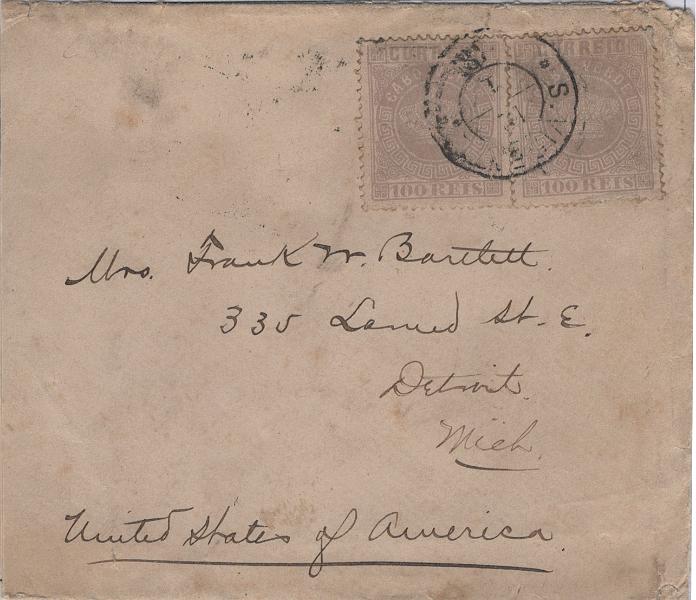 CORREIO
CABO VERDE
S. VICEN
100 REIS 100 REIS
Mrs. Frank W. Bartlett.
335 Larned St. E.
Detroit.
Mich.
United States of America